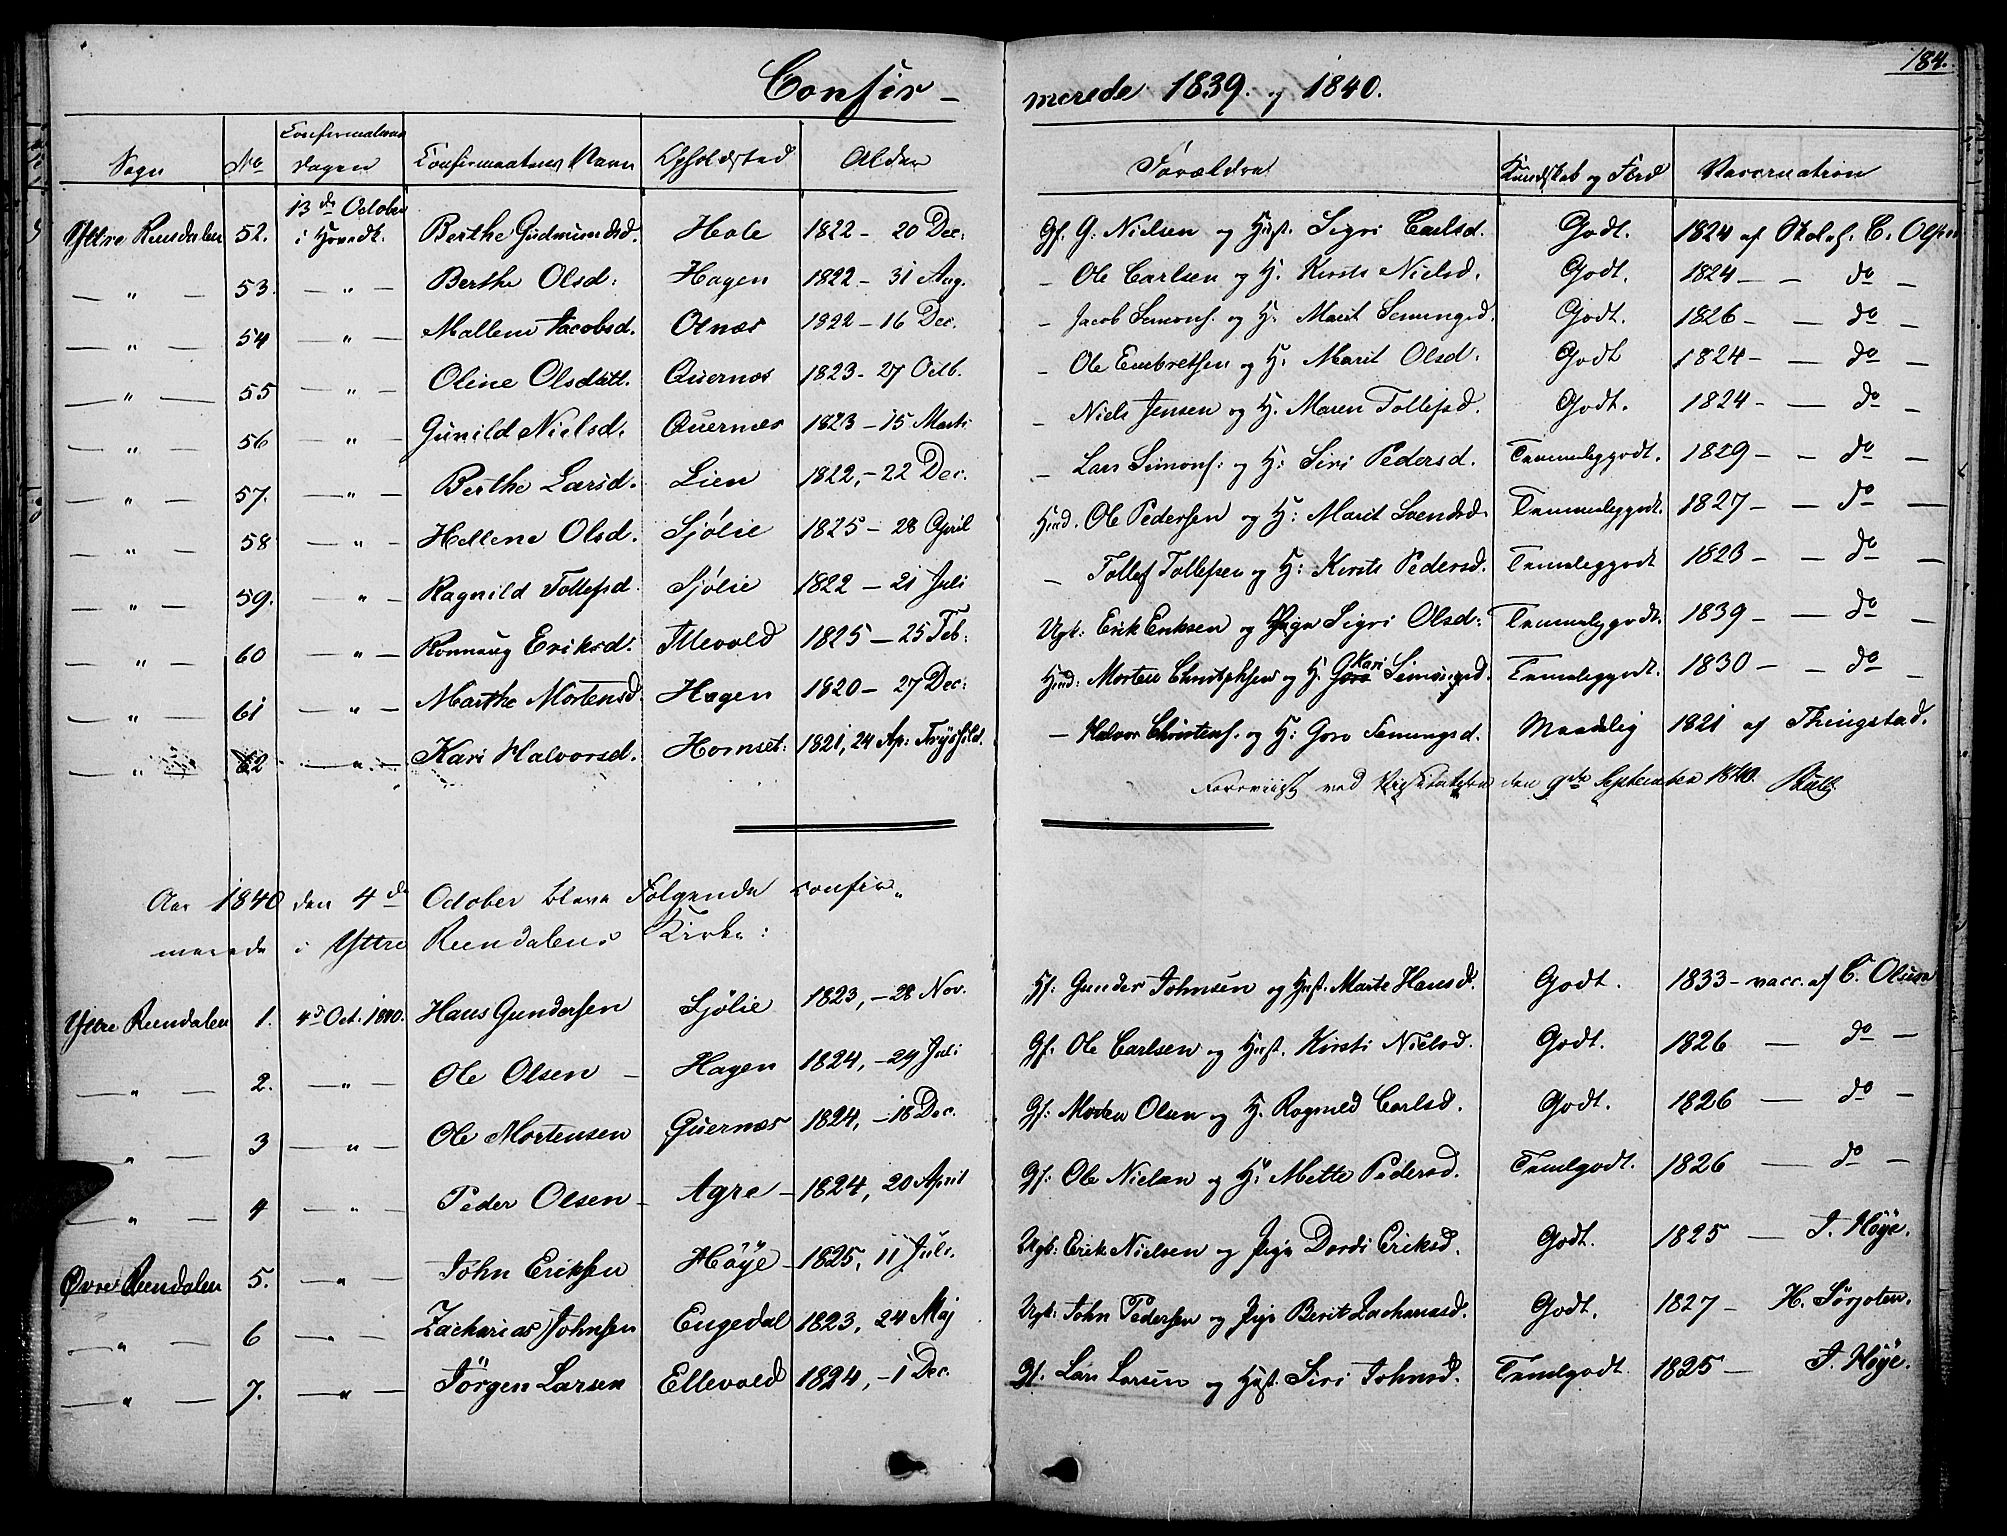 184.
Confir- merede 1839. og 1840.
Sogn No Confirmations dagen Confirmantens Navn Opholdsted Alder Forældre Kundskab og Flid Vaccination
Yttre Rendalen 52. 13de October i Hovedk. Berthe Gudmundsd. Hole 1822 - 20 Dec: Gf. G. Nielsen og Hust. Sigri Carlsd. Godt. 1824 af Skolef. C. Olsen
— " — 53. — " — Berthe Olsd: Hagen 1822 - 31 Aug. - Ole Carlsen og H. Kirsti Nielsd. Godt. 1824 — - do -
— " — 54 — " — Mallene Jacobsd. Otnæs 1822 - 16 Dec. - Jacob Simons. og H. Marit Semingsd. Godt. 1826 - — do -
— " — 55 — " — Oline Olsdatt. Quernæs 1823 - 27 Octb. - Ole Embretsen og H. Marit Olsd. Godt 1824 - — do -
— " — 56 — " — Gunild Nielsd. Quernæs 1823 - 15 Marts - Niels Jensen og H. Maren Tollefsd. Godt. 1824 - — do -
— " — 57. — " — Berthe Larsd. Lien 1822, - 22 Dec. - Lars Simons: og H: Siri Pedersd. Temmeliggodt. 1829 - - do -
— " — 58 — " — Hellene Olsd. Sjølie 1825 - 28 April Huusd. Ole Pedersen og H: Marit Svendsd. Temmeliggodt. 1827 - — do -
— " — 59. " — Ragnild Tollefsd. Sjølie 1822 - 21 Juli - Tollef Tollefsen og H: Kirsti Pedersd. Temeliggodt 1823 - — do -
— " — 60 — " — Ronnaug Eriksd. Illevold 1825 - 25 Feb: Ugt: Erik Eriksen og Pige Sigri Olsd: Temmeliggodt. 1839 - — do -
— " — 61 — " — Marthe Mortensd. Hagen 1820 - 27 Dec: Huusd: Morten Christophsen og H. Goro Kari Simingsd. Temmeliggodt. 1830 - - do -
— " 62 — " — Kari Halvorsd. Hornset: 1821, 24 Ap: Trysfild. - Halvor Christens. og H: Goro Semingsd. Maadelig 1821 af Thingstad.
Foreviist ved Visitatsen den 9de September 1840.
Aar 1840 den 4de October bleve Følgende confir-
merede i Yttre Rendalens Kirke:
Yttre Rendalen 1. 4d Oct. 1840. Hans Gundersen Sjølie 1823, - 28 Nov. Hf: Gunder Johnsen og Hust. Marte Hansd. Godt. 1833 - vacc. af C. Olsen
— " — 2. — " — Ole Olsen - Hagen 1824, - 29 Juli Gf: Ole Carlsen og Hust. Kirsti Nielsd. Godt. 1826 — do -
— " — 3 — " — Ole Mortensen Quernæs 1824, - 18 Dec. Gf: Morten Olsen og H. Ragnild Carlsd. Godt. 1826 — do -
— " — 4 — " — Peder Olsen - Agre - 1824, 20 April Gf: Ole Nielsen og H: Mette Pedersd. Temlgodt. 1826 — do -
Øvre Rendalen 5. — " — John Eriksen Høye - 1825, 11 Juli. Ugt: Erik Nielsen og Pige Dordi Eriksd. Godt. 1825 — J. Høye.
— " — 6 — " — Zacharias Johnsen Engedal 1823, 24 Maj Ugt: John Pedersen og Pige Berit Zachariasd. Godt. 1827 - H. Sørjoten.
— " — 7. — " — Jörgen Larsen Ellevold 1824, - 1 Dec. Gf. Lars Larsen og Hust. Siri Johnsd. Temlgodt. 1825 — J. Høye.